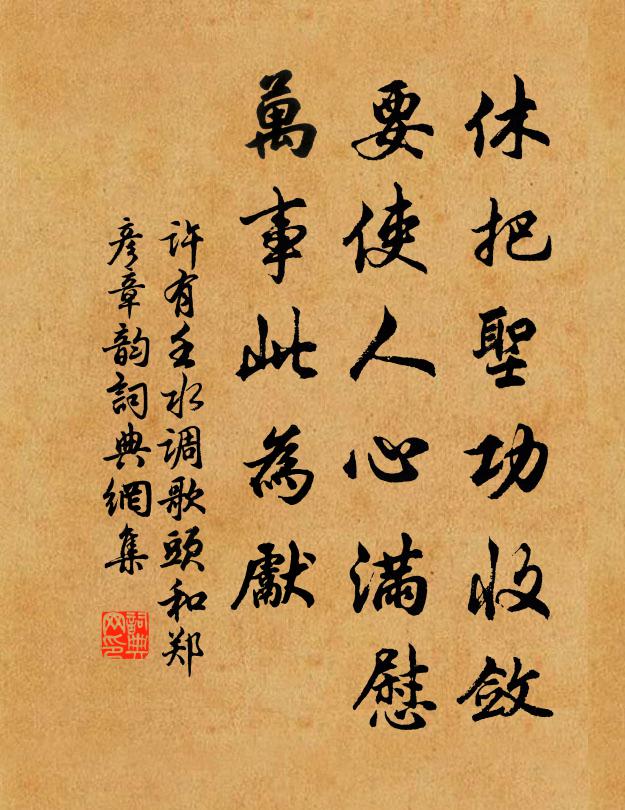 休把聖功收斂
要使人心滿慰
萬事此為獻
许有壬水调歌頭和郑
彦章韵詞典網集
詞典
网印